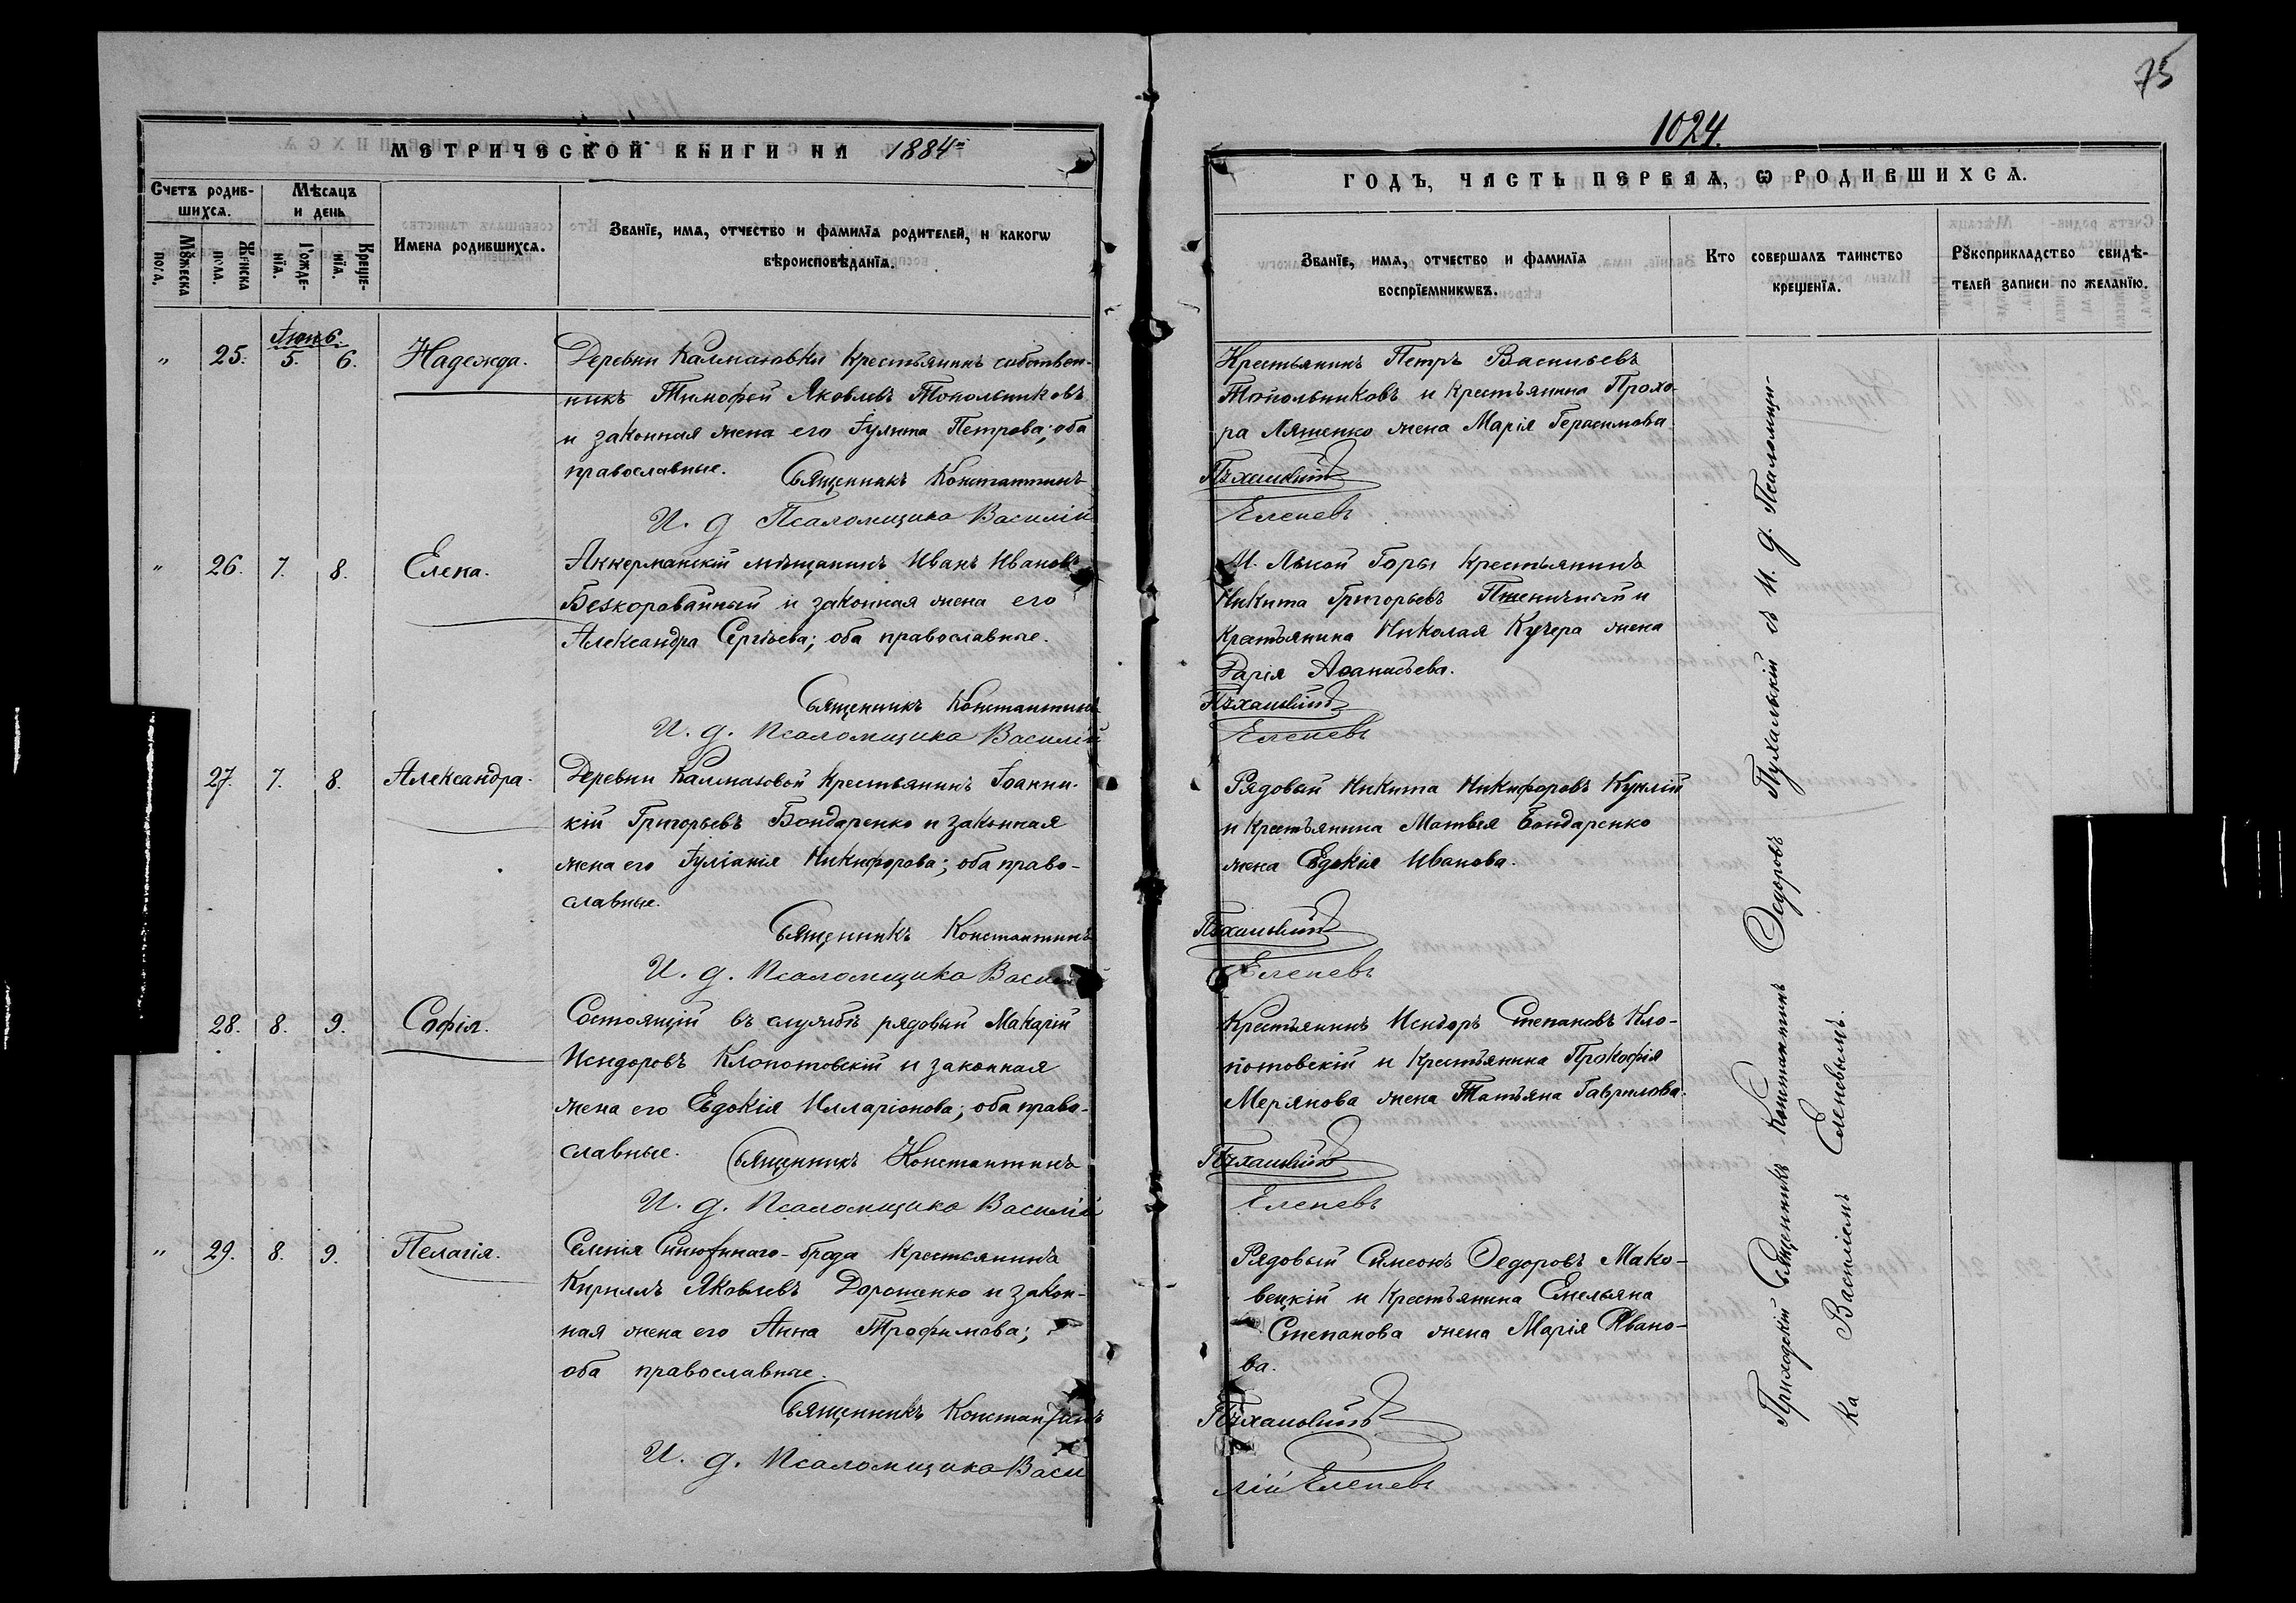 75
1024.
МЕТРИЧЕСКОЙ КНИГИ НА 1884й
ГОДЪ, ЧАСТЬ ПЕРВАЯ, Ѡ РОДИВШИХСѦ.
Счетъ родив-
шихсѧ.
Мѣсѧцъ
и день
Мꙋжеска
пола.
Женска
пола.
Рожде-
нїѧ.
Креще-
нїѧ.
Имена родившихсѧ.
Званїе, имѧ, отчество и фамилїѧ родителей, и какогѡ
вѣроисповѣданїѧ.
Званїе, имѧ, отчество и фамилїѧ
воспрїемникѡвъ.
Кто совершалъ таинство
крещенїѧ.
Рꙋкоприкладство свидѣ-
телей записи по желанїю.
" 25. 5. 6. Надежда.
Деревни Калмазовки крестьянинъ собствен-
никъ Тимофей Яковлевъ Топольниковъ
и законная жена его Іулита Петрова; оба
православные.
Священникъ Константинъ
И. д Псаломщика Василій
Крестьянинъ Петръ Васильевъ
Топольниковъ и крестьянина Прохо-
ра Ляшенко жена Марія Герасимова
Пухальскій
Еленевъ
" 26. 7. 8. Елена.
Аккерманскій мѣщанинъ Иванъ Ивановъ
Безкоровайный и законная жена его
Александра Сергѣева; оба православные.
Священникъ Константинъ
И. д. Псаломщика Василій
М. Лысой Горы крестьянинъ
Никита Григорьевъ Пшеничный и
крестьянина Николая Кучера жена
Дарія Аѳанасьева.
Пухальскій
Еленевъ
27. 7. 8. Александра.
Деревни Калмазовой крестьянинъ Іоанни-
кій Григорьевъ Бондаренко и законная
жена его Іуліанія Никифорова; оба право-
славные.
Священникъ Константинъ
И. д. Псаломщика Василій
Рядовый Никита Никифоровъ
и крестьянина Матвѣя Бондаренко
жена Евдокія Иванова.
Пухальскій
Еленевъ
28. 8. 9. Софія.
Состоящій въ службѣ рядовый Макарій
Исидоровъ Клопотовскій и законная
жена его Евдокія Илларіонова; оба право-
славные.
Священникъ Константинъ
И. д. Псаломщика Василій
Крестьянинъ Исидоръ Степановъ Кло-
потовскій и крестьянина Прокофія
Меріянова жена Татьяна Гаврилова.
Пухальскій
Еленевъ
" 29. 8. 9. Пелагія.
Селенія Синюхинаго-брода крестьянинъ
Кириллъ Яковлевъ Дорошенко и закон-
ная жена его Анна Трофимова;
оба православные.
Священникъ Константинъ
И. д. Псаломщика Васи
Рядовый Симеонъ Ѳедоровъ Мако-
вецкій и крестьянина Емельяна
Степанова жена Марія Ивано-
ва.
Пухальскій
лій Еленевъ
Приходскій Священникъ Константинъ Ѳедоровъ Пухальскій съ И. д. Псаломщи-
ка Василіемъ Еленевымъ.